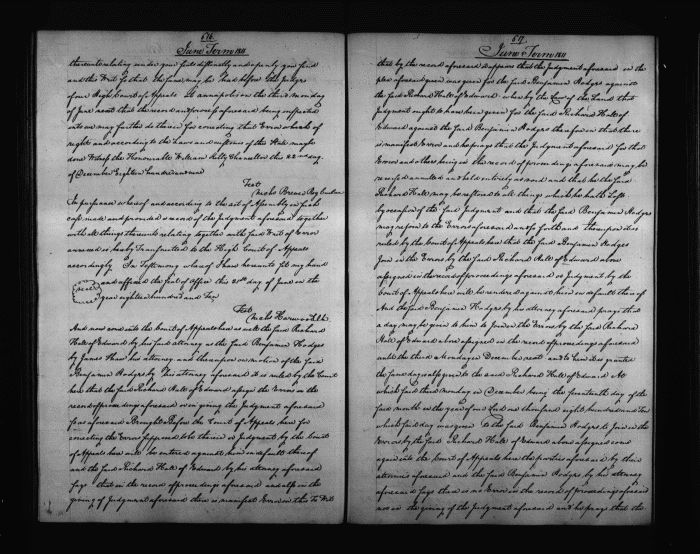 616
June Term 1811
thereunto relating under your Seal distinctly and openly you Send
and this Writ So that the Same may be Had before the Judges
of our High Court of Appeals at annapolis on the third monday
of June next that the record and process aforesaid being inspected
into we may further do therein for correcting that Error what of
right and according to the Laws and customs of this State ought
done Witness the Honourable William Kilty Chancellor this 22nd day
of December Eighteen hundred and
Test
Nichs Brewer Reg Cur Can
In pursuance whereof and according to the act of Assembly in such
case made and provided a record of the Judgment aforesaid together
with all things thereunto relating together with Said Writ of Error
annexed is hereby Transmitted to the High Court of Appeals
accordingly In Testimony whereof I have hereunto set my hand
and affixed the Seal of Office this day of June in the
year eighteen hundred and Ten
Test
Nichs Harwood Clk
And now come into the Court of Appeals here as well the Said Richard
Hall of Edward by his Said attorney as the Said Benjamin Hodges
by James Shaw his attorney and thereupon on motion of the Said
Benjamin Hodges by his attorney aforesaid It is ruled by the Court
here that the Said Richard Hall of Edward assign the Errors in the
record of proceedings aforesaid or in giving the Judgment aforesaid
So as aforesaid Brought Before the Court of Appeals here for
correcting the Errors Supposed to be therein or Judgment by the Court
of Appeals here will be entered against him in default thereof
and the Said Richard Hall of Edward by his attorney aforesaid
Says that in the record of proceedings aforesaid and also in the
giving of Judgment aforesaid there is manifest Error in this To Wit
617
June Term 1811
that by the record aforesaid it appears that the Judgment aforesaid in the
plea aforesaid given was given for the Said Benjamin Hodges against
the Said Richard Hall of Edward when by the Law of the Land that
Judgment ought to have been given for the Said Richard Hall of
Edward against the Said Benjamin Hodges therefore in that there
is manifest Error and he prays that the Judgment aforesaid for that
Error and others being in the record of proceedings aforesaid may be
reversed annulled and held entirely as void and that he the Said
Richard Hall may be restored to all things which he hath Lost
by occasion of the Said Judgment and that the Said Benjamin Hodges
may rejoin to the Errors aforesaid and so forth and thereupon it is
ruled by the Court of Appeals here that the Said Benjamin Hodges
Join in the Errors by the Said Richard Hall of Edward above
assigned in the record of proceedings aforesaid or Judgment by the
Court of Appeals here will be rendered against him in default thereof
And the Said Benjamin Hodges by his attorney aforesaid prays that
a day may be given to him to Join in the Errors by the Said Richard
Hall of Edward above assigned in the record of proceedings aforesaid
until the third Monday in December next and to him it is granted
the Same day is also given to the Said Richard Hall of Edward At
which Said third monday in December being the seventeenth day of the
Said month in the year of our Lord one thousand eight hundred and Ten
which Said day was given to the Said Benjamin Hodges to Join in the
Errors by the Said Richard Hall of Edward above assigned come
again into the Court of Appeals here the parties aforesaid by their
attornies aforesaid and the Said Benjamin Hodges by his attorney
aforesaid Says there is no Error in the record of proceedings aforesaid
nor in the giving of the Judgment aforesaid and he prays that the